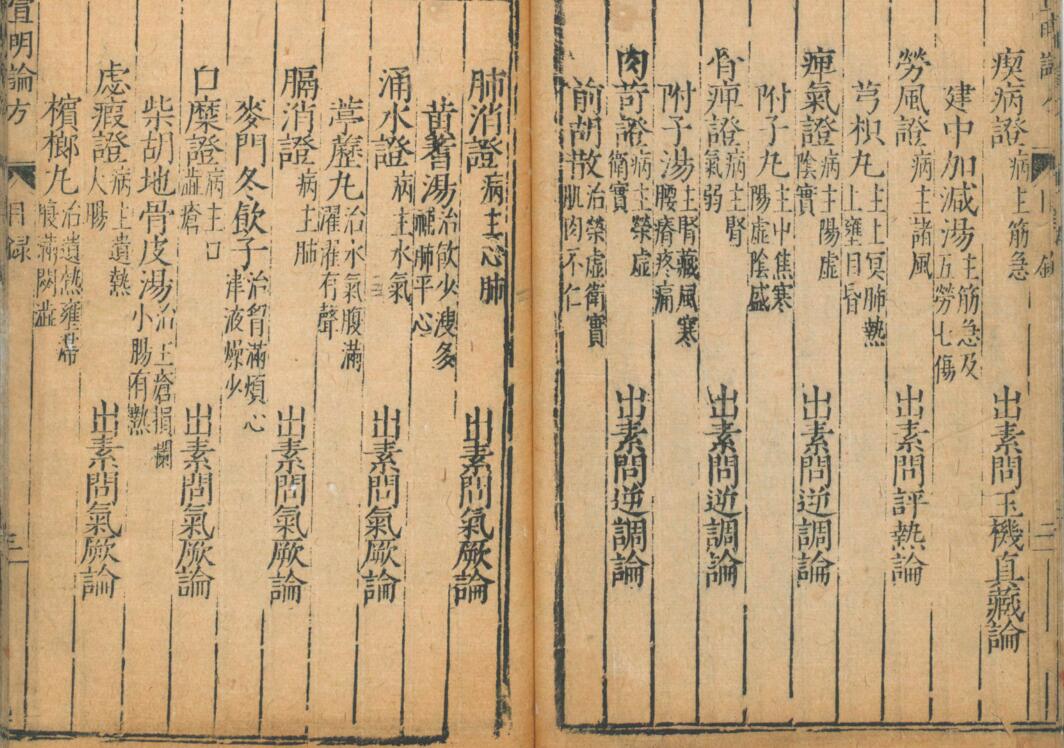 瘈病證 病主筋急 出素問玉機真藏論
建中加減湯 主筋急及五勞七傷
勞風證 病主諸風 出素問評熱論
芎枳丸 主上冥肺熱上壅目昏
痺氣證 病主陽虛陰實 出素問逆調論
附子丸 主中焦寒陽虛陰盛
骨痺證 病主腎氣弱 出素問逆調論
附子湯 主腎藏風寒腰脊疼痛
肉苛證 病主榮虛衛實 出素問逆調論
前胡散 治榮虛衛實肌肉不仁
肺消證 病主心肺 出素問氣厥論
黃蓍湯 治飲少溲多補肺平心
涌水證 病主水氣 出素問氣厥論
葶藶丸 治水氣腹滿濯濯有聲
膈消證 病主肺 出素問氣厥論
麥門冬飲子 治胷滿煩心津液燥少
口糜證 病主口澁瘡 出素問氣厥論
柴胡地骨皮湯 治王瘡損欄小腸有熱
虙瘕證 病主遺熱大腸 出素問氣厥論
檳榔丸 治遺熱壅滯 滿閟澁
宣明論方 目錄 三